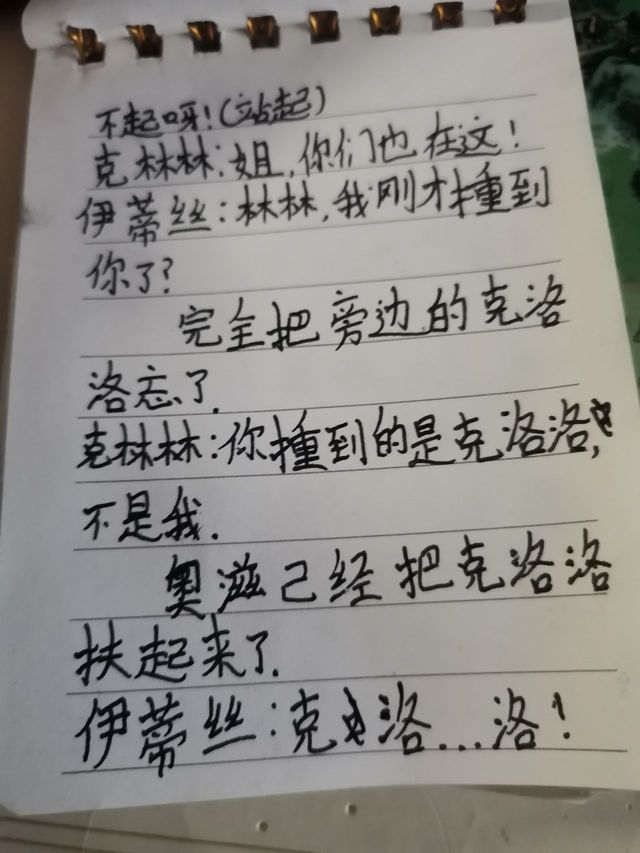 不起呀！(站起)
克林林：姐，你们也在这！
伊蒂丝：林林，我刚才撞到
你了？
完全把旁边的克洛
洛忘了.
克林林：你撞到的是克洛洛，
不是我.
奥滋已经把克洛洛
扶起来了.
伊蒂丝：克洛...洛！